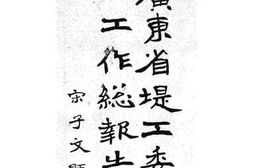 廣東省堤工委
工作總報告
宋子文題